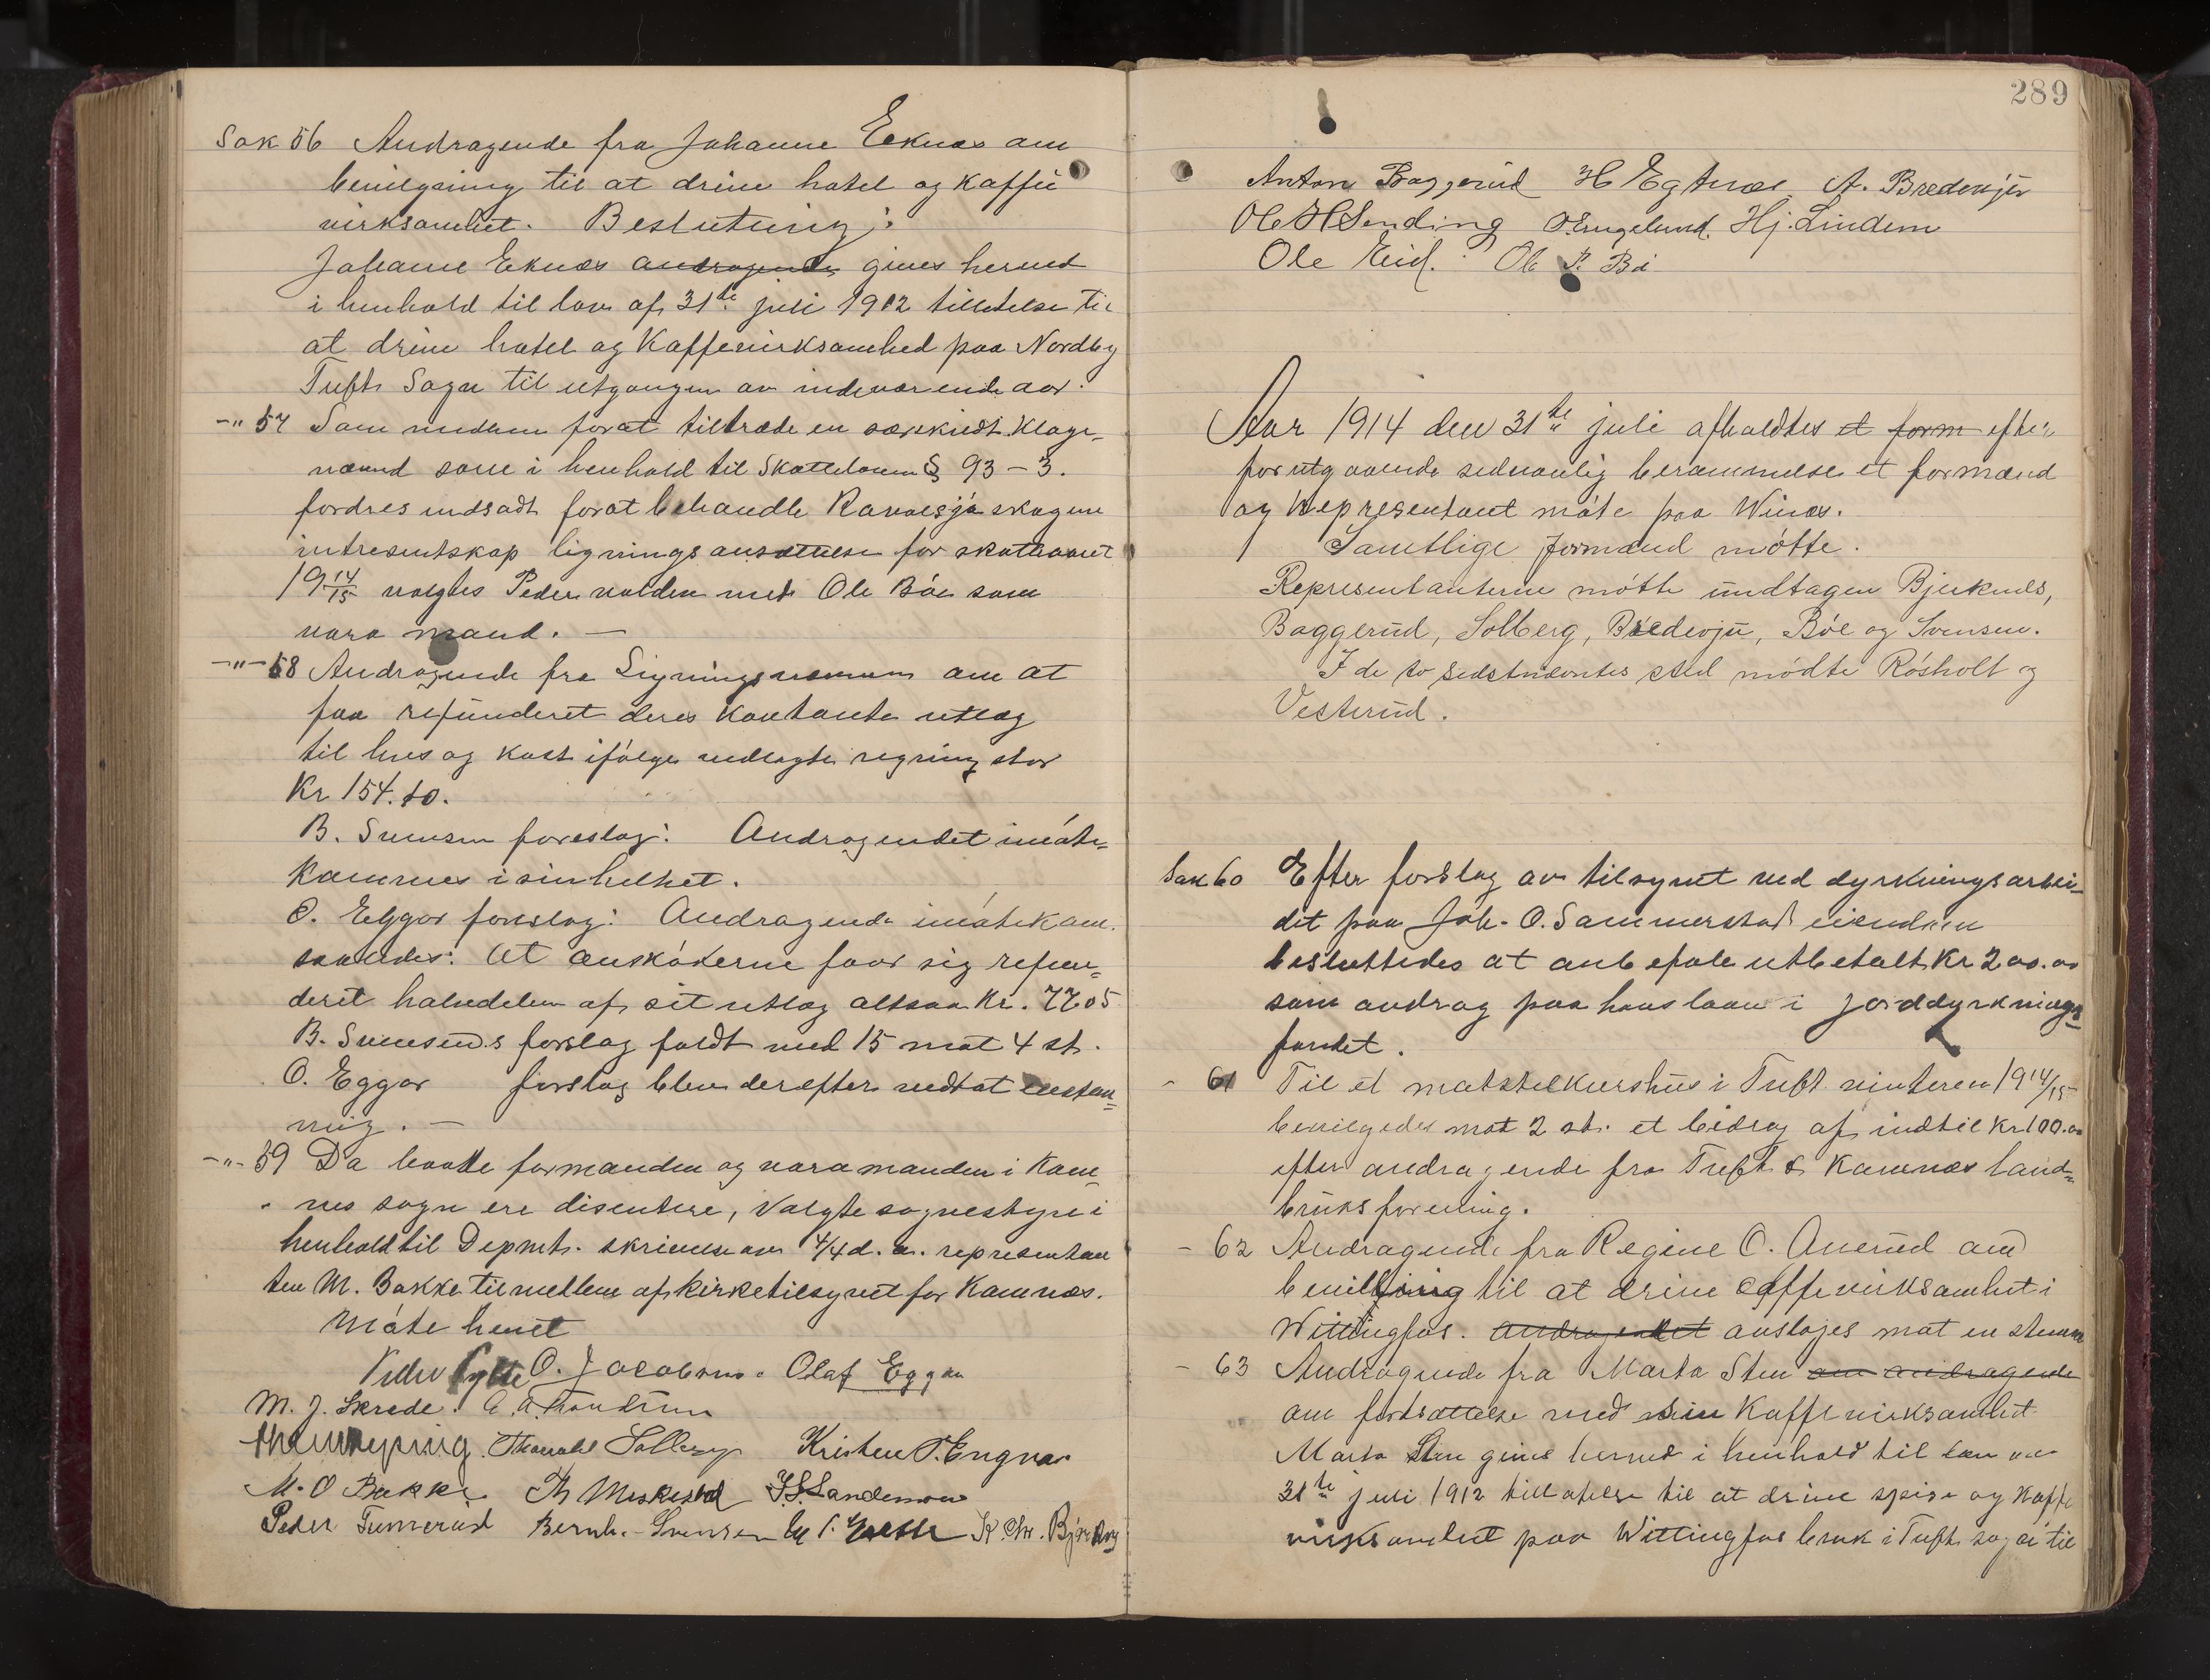 Sak 56 Andragende fra Johanne Eeknæs om
bevilgning til at drive hotel og kaffe
virksomhet. Beslutning:
Johanne Eknæs andragende gives herved
i henhold til lov af 31te juli 1912 tilladelse til
at drive hotel og Kaffevirksomhed paa Nordby
Tufts Sogn til utgangen av indeværende aar.
-"- 57 Som medlem forat tiltræde en særskiedt Klage-
nævnd som i henhold til Skatteloven § 93 - 3.
fordres indsadt forat behandle Ravalsjø skogene
intresentskap ligningsansættelse for skatteaaret
19 14/15 valgtes Peder volden med Ole Bøe som
vara mand. —
-"- 58 Andragende fra Ligningsnævnen om at
faa refunderet deres kontante utlæg
til hus og kost ifølge vedlagte regning stor
Kr 154.10.
B. Svensen foreslog: Andragendet imøte-
kommes i sin helhet.
O. Eggar foreslog: Andragende imøtekom.
saaledes: At ansøkerne faar sig refun-
deret halvdelen af sit utlæg altsaa Kr. 77.05
B. Svensens forslag faldt med 15 mot 4 st.
O. Eggar forslag blev derefter vedtat enstem-
mig. —
-"- 59 Da baade formanden og varamanden i Kom-
nes sogn ere disentere, valgte sognestyre i
henhold til Depmts. skrivelse av 4/4 d. a. representan
ten M. Bakke til medlem af kirketilsynet for Komnæs.
Møte hevet
O. Jacobsen. Olaf Eggar
M. J. Skrede.
Thorvald Solberg Kristen P. Engnæs
M. O Bakke Th Meskestad
Peder Tumerud Bernh. Svensen K. Chr. Bjørndag
289
Anton Baggerud H Egtnæs A. Bredevjer
Ole H Sending O. Engelund. Hj. Lindem
Ole Eid. Ole P. Bø
Aar 1914 den 31te juli afholdtes et form efter
forutgaaende sedvanlig berammelse et formænd
og Representant møte paa Winæs.
Samtlige formænd møtte.
Representanterne møtte undtagen Bjerknes,
Baggerud, Solberg, Bredevju, Bøe og Svensen.
I de to sidstnævntes sted mødte Røsholt og
Vesterud.
Sak 60 Efter forslag av tilsynet ved dyrkningsarbei-
det paa Joh. O. Sommerstad eiendom
besluttedes at anbefale utbetalt Kr 200.00
som avdrag paa hans laan i jorddyrknings-
fondet.
- 61 Til et matstelkurshus i Tuft vinteren 1914/15
bevilgedes mot 2 st. et bidrag af indtil Kr 100.00
efter andragende fra Tuft & Komnæs land-
bruksforening.
- 62 Andragende fra Regine O. Auerud om
bevilgning til at drive caffevirksomhet i
Wittingfos. Andragendet avslages mot en stemm
- 63 Andragende fra Marta Sten om andragende
om fortsættelse med sin Kaffevirksomhet
Marta Sten gives herved i henhold til lov av
31te juli 1912 tillatelse til at drive spise og Kaffe
virksomhet paa Wittingfos bruk i Tuft sogn til